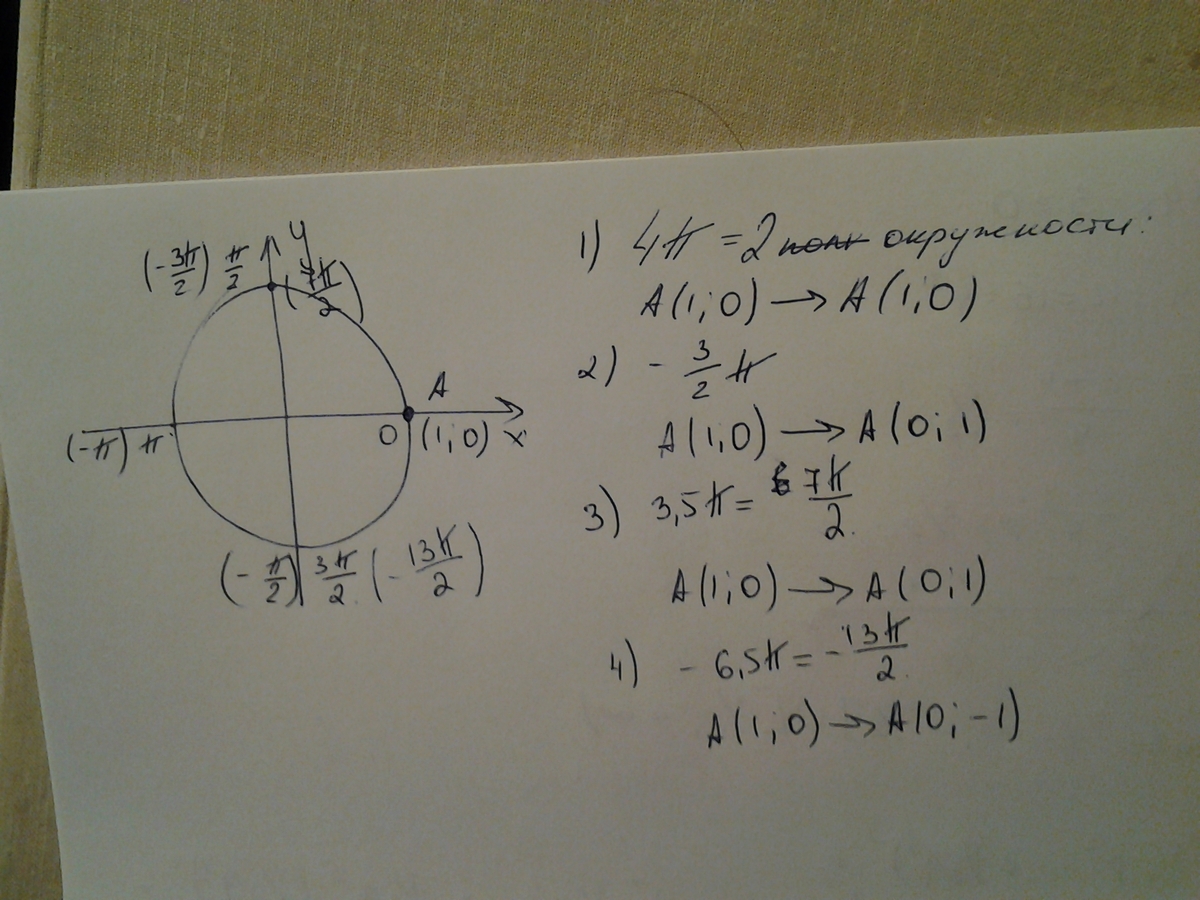 y
(-3π/2) π/2 (7π/2)
A
(-π) π 0 (1;0) x
(-π/2) 3π/2 (-13π/2)
1) 4π = 2 окружности:
A(1;0) → A(1;0)
2) - 3/2 π
A(1;0) → A(0;1)
3) 3,5π = 7π/2
A(1;0) → A(0;1)
4) - 6,5π = -13π/2
A(1;0) → A(0;-1)